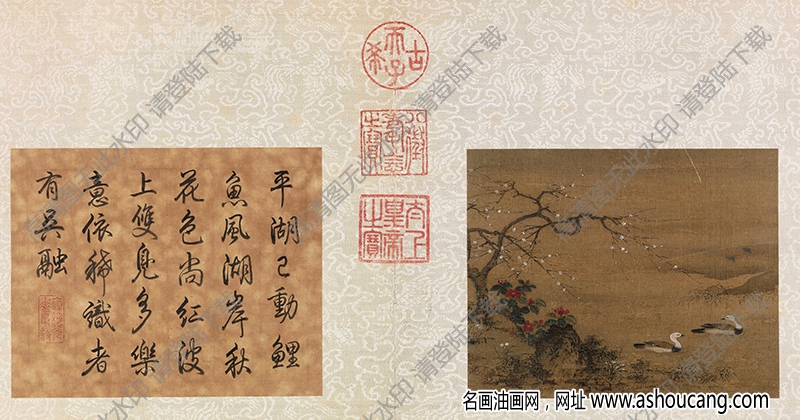 古稀天子
八徵耄念之寶
太上皇帝之寶
平湖已動鯉
魚風湖岸秋
花色尚紅波
上雙鳧多樂
意依稀識者
有吳融
请登陆下载
无此水印 请登陆下载
名画油画网，网址 www.ashoucang.com